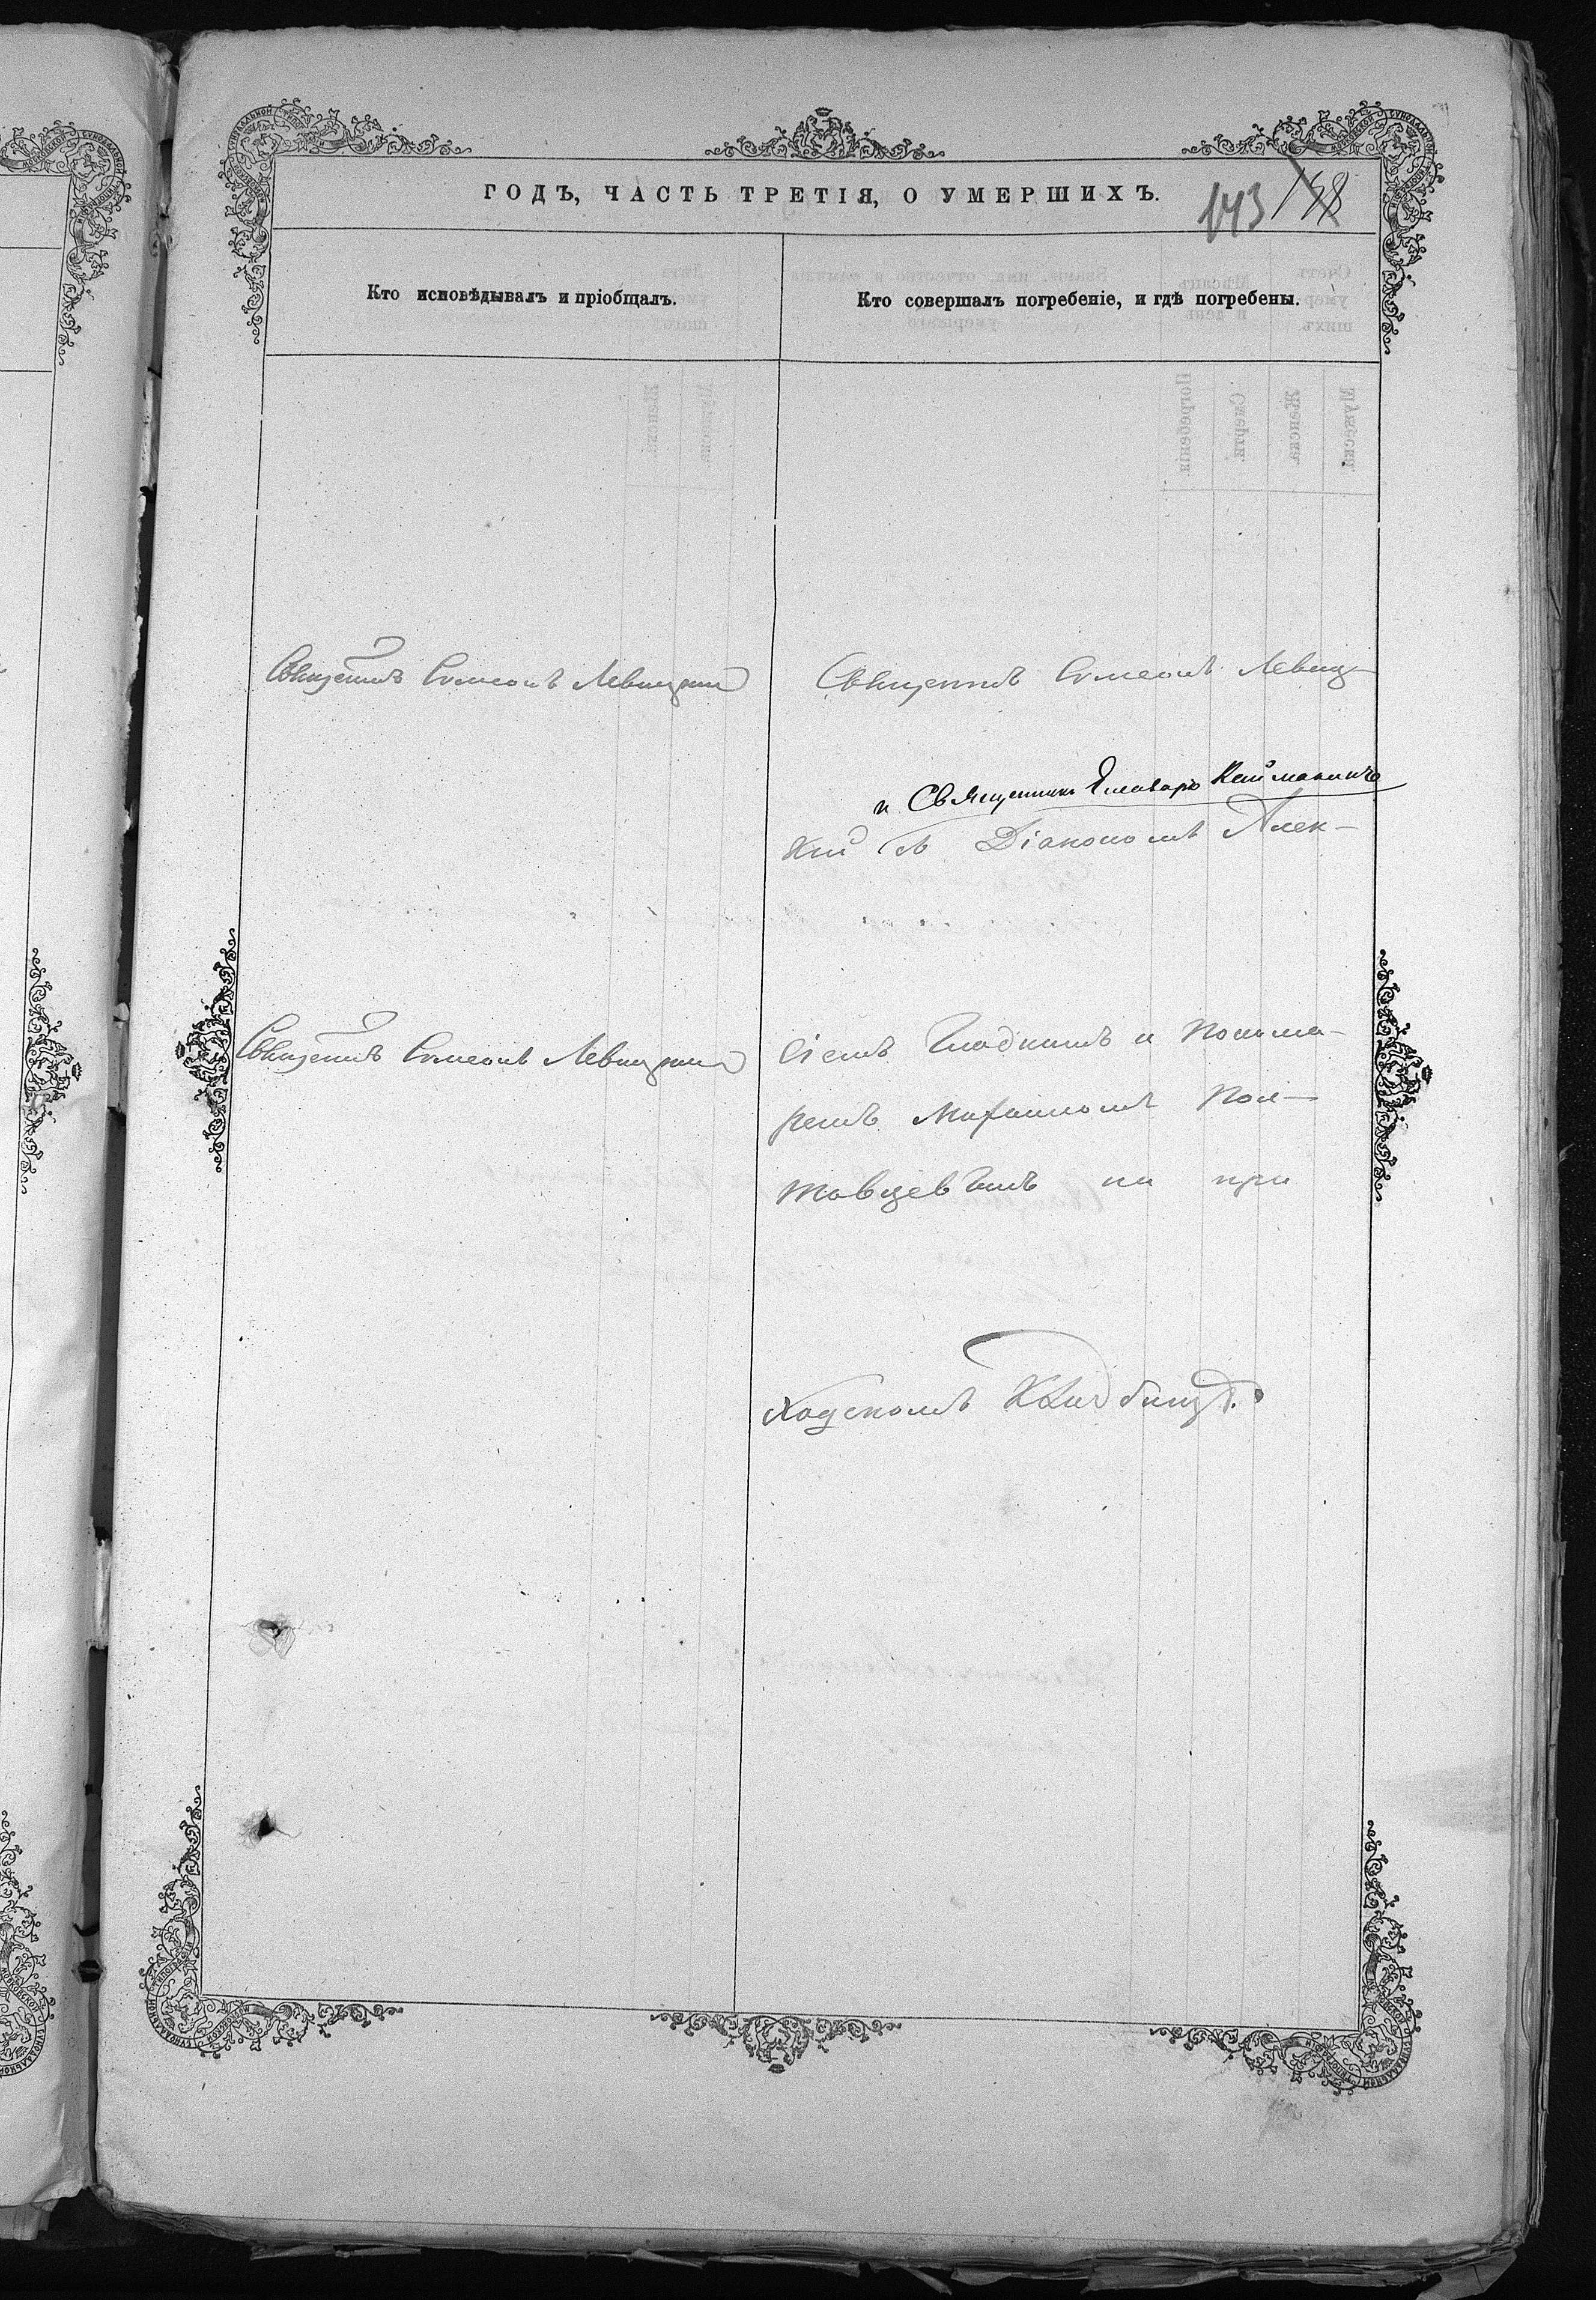 ГОДЪ, ЧАСТЬ ТРЕТІЯ, О УМЕРШИХЪ.
143 158
Кто исповѣдывалъ и пріобщалъ.
Кто совершалъ погребеніе, и гдѣ погребены.
Симеонъ Левицкій
Симеонъ Левиц-
и Священникъ
кій съ Діакономъ Алек-
Симеонъ Левицкій
сіемъ Гладкимъ и Понома-
ремъ Михаиломъ Пол-
тавцевымъ на при
ходскомъ кладбищѣ.